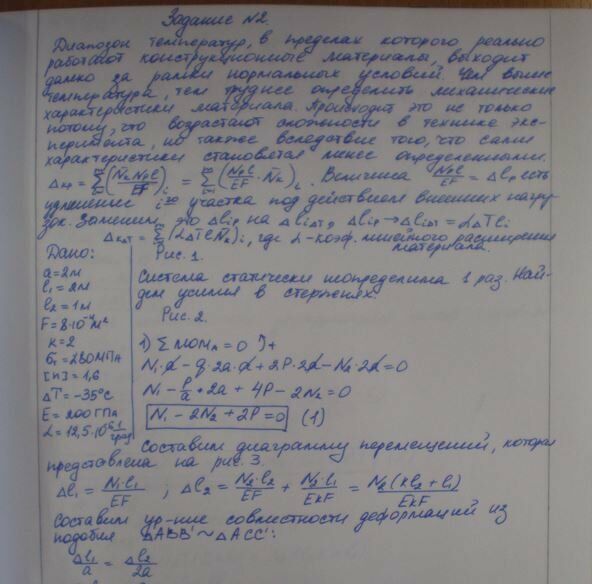 Задание N2.
Диапазон температур, в пределах которого реально
работают конструкционные материалы, выходит
далеко за рамки нормальных условий. Чем выше
температура, тем труднее определить механические
характеристики материала. Происходит это не только
потому, что возрастают сложности в технике экс-
перимента, но также вследствие того, что сами
характеристики становятся менее определенными.
Δкр = Σ(N̄к Np l / EF)i = Σ(Np l / EF · N̄к)i. Величина Np l / EF = Δlp есть
удлинение i го участка под действием внешних нагру-
зок. Заменим это Δlip на ΔliΔT, Δlip → ΔliΔT = αΔTli
ΔкΔT = Σ(αΔTlN̄к)i, где α-коэф. линейного расширения
материала.
Рис. 1.
Дано:
a = 2м
l1 = 2м
l2 = 1м
F = 8·10⁻⁴м²
к = 2
σт = 280МПа
[n] = 1,6
ΔT = -35°C
E = 200ГПа
α = 12,5·10⁻⁶ 1/град
Система статически неопределима 1 раз. Най-
дем усилия в стержнях.
Рис. 2.
1) Σ момA = 0
N1·a - q·2a·a + 2P·2a - N2·2a = 0
N1 - P/a · 2a + 4P - 2N2 = 0
N1 - 2N2 + 2P = 0 (1)
Составим диаграмму перемещений, которая
представлена на рис. 3.
Δl1 = N1·l1 / EF ; Δl2 = N2·l2 / EF + N2·l1 / EкF = N2(кl2 + l1) / EкF
Составим ур-ние совместности деформаций из
подобия ΔABB' ~ ΔACC':
Δl1 / a = Δl2 / 2a